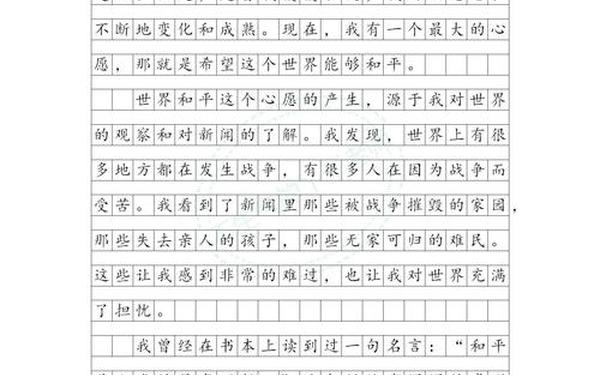 不断地变化和成熟。现在，我有一个最大的心
愿，那就是希望这个世界能够和平。
世界和平这个心愿的产生，源于我对世界
的观察和对新闻的了解。我发现，世界上有很
多地方都在发生战争，有很多人在因为战争而
受苦。我看到了新闻里那些被战争摧毁的家园，
那些失去亲人的孩子，那些无家可归的难民。
这些让我感到非常的难过，也让我对世界充满
了担忧。
我曾经在书本上读到过一句名言：“和平